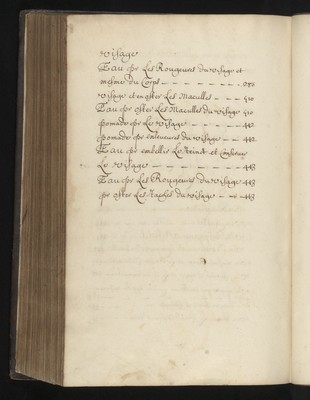 Visage
Eau pr Les Rougeurs du Visage et
mesme du Corps - - - - - - -
Visage et en oster Les Maculles - - 410
Eau pr oster Les Maculles du Visage 410
pomade pr Le Visage - - - - - 442
pomade pr Visage - - 442
Eau pr embellir Le teindt et conserver
Le Visage - - - - - - - 443
Eau pr Les Rougeurs du Visage 443
pr oster Les taches du Visage - - 443